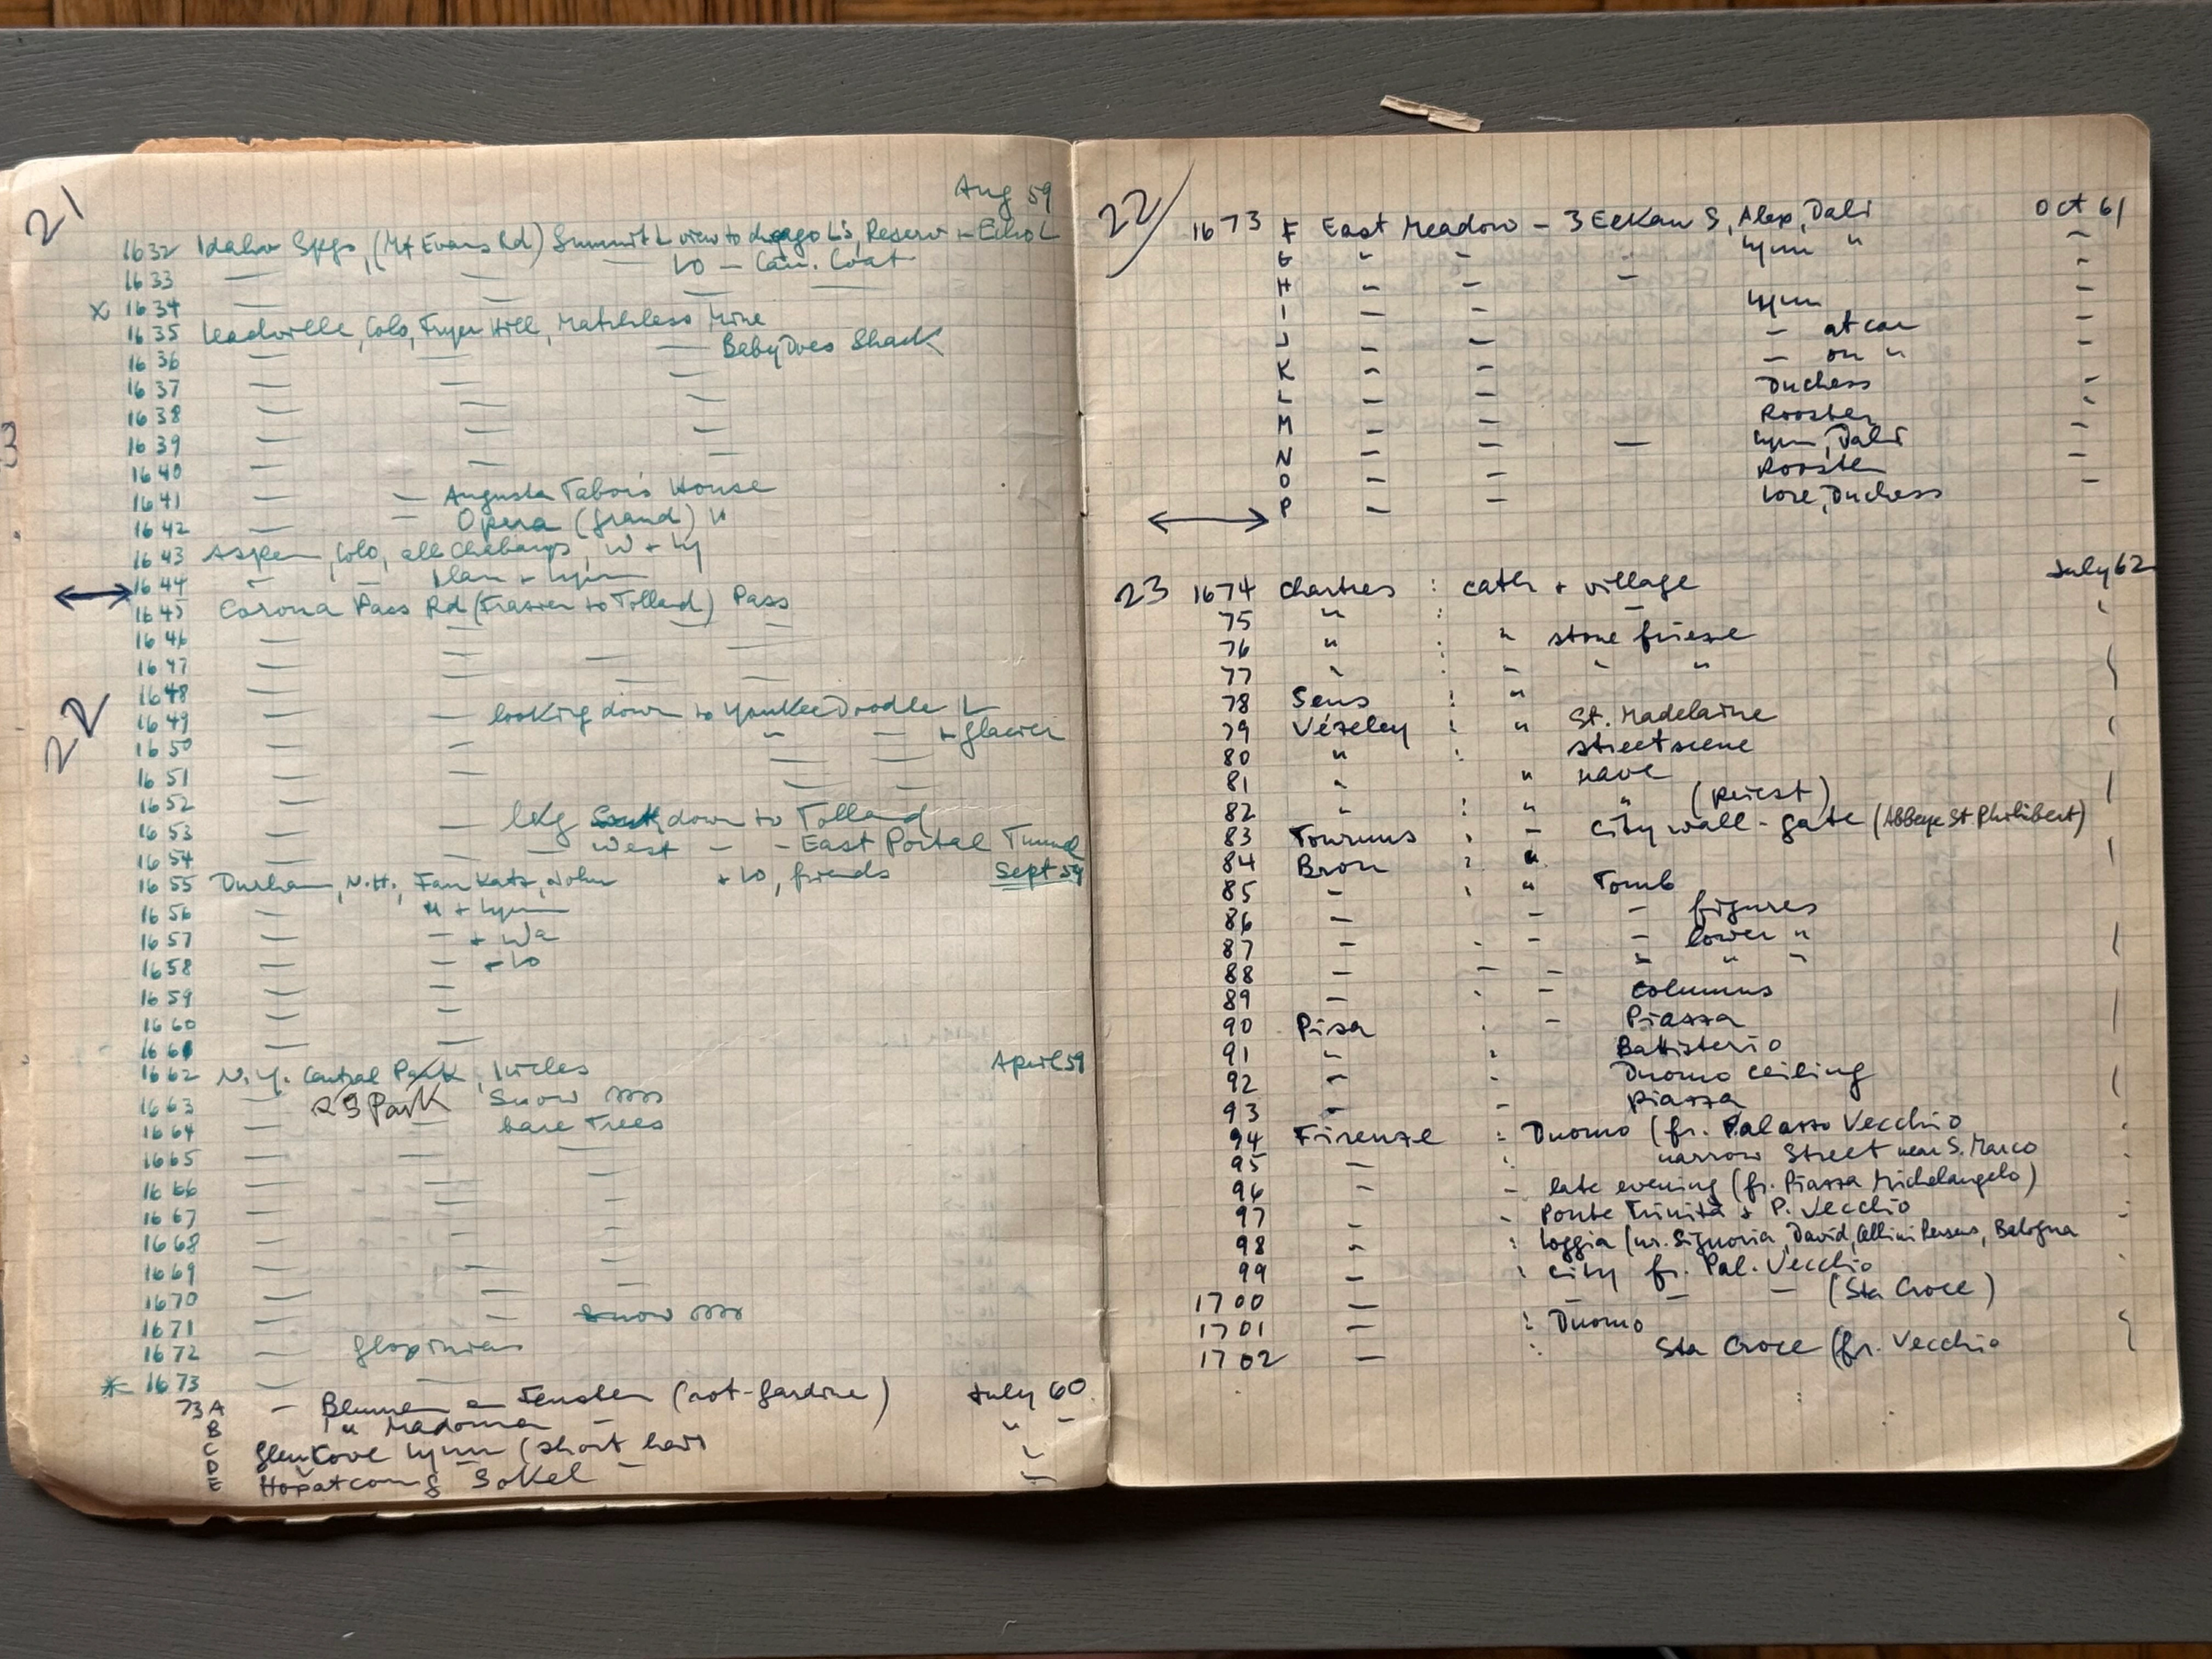 21
Aug 59
1632 Idaho Spgs, (Mt Evans Rd) Summit L view to Chicago L's, Reserv + Echo L
1633 — — — LO — Coat
x 1634 — — — —
1635 Leadville, Colo, Fryer Hill, Matchless Mine
1636 — — — Baby Does Shack
1637 — — —
1638 — — —
1639 — — —
1640 — — —
1641 — — Augusta Tabors House
1642 — — Opera (Grand) "
1643 Aspen, Colo,
1644 " — + Lynn
1645 Corona Pass Rd (Frasier to Tolland) Pass
1646 — — — —
1647 — — — —
22
1648 — — — —
1649 — — looking down to Yankee Doodle L
1650 — — " — + glacier
1651 — — — —
1652 — — — —
1653 — — lkg down to Tolland
1654 — — West — - East Portal Tunnel
1655 Durham, N.H., Fam Katz, John + LO, friends Sept 59
1656 — " + Lynn
1657 — — + Wa
1658 — — + LO
1659 — —
1660 — —
1661 — —
1662 N.Y. Central Park, Circles April 59
1663 — RS Park Snow
1664 — — bare Trees
1665 — — —
1666 — — —
1667 — — —
1668 — — —
1669 — — —
1670 — — —
1671 — — Snow
1672 — gloxinias
* 1673 — —
73 A — Blumen a Fenster (rot-gardine) July 60
B " Madonna — " —
C Glen Cove Lynn (short hair "
D — —
E Hopatcong Sokel "
22/
1673 F East Meadow — 3 Eckau S, Alex, Dali Oct 61
G " - " Lynn " —
H — — — "
I — — Lynn —
J — — — at car —
K — — — on " —
L — — Duchess
M — — Rooster —
N — — — Lynn, Dali "
O — — Rooster —
P — — Lore, Duchess —
23 1674 Chartres : cath + village July 62
75 " : — "
76 " : " stone frieze
77 " : — " "
78 Sens : "
79 Vézeley : " St. Madelaine
80 " : street scene
81 " " nave
82 " : " " (priest)
83 Tournus : — City wall - gate (Abbaye St. Philibert)
84 Brou : "
85 — : " Tomb
86 — — — figures
87 — . — — lower "
88 — — — " " "
89 — . — columns
90 Pisa . — Piazza
91 " . Battisterio
92 — . Duomo ceiling
93 — — Piazza
94 Firenze : Duomo (fr. Palazzo Vecchio
95 — : narrow Street near S. Marco
96 — — late evening (fr. Piazza Michelangelo)
97 — - Ponte Trinita + P. Vecchio
98 — : Loggia (nr. Signoria, David, Cellini Perseus, Bologna
99 — : City fr. Pal. Vecchio
1700 — — — — (Sta Croce)
1701 — : Duomo
1702 — : Sta Croce (fr. Vecchio